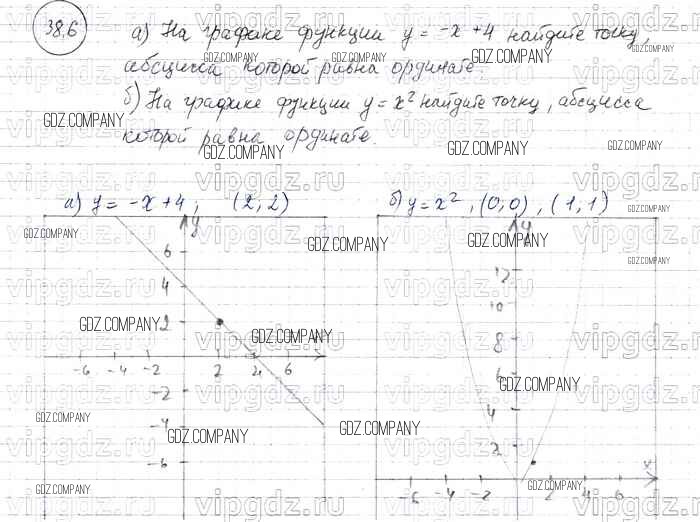 38.6
а) На графике функции y = -x + 4 найдите точку,
абсцисса которой равна ординате.
б) На графике функции y = x² найдите точку, абсцисса
которой равна ординате.
а) y = -x + 4 ; (2; 2)
б) y = x² , (0; 0) , (1; 1)
y
6
4
2
-6 -4 -2 2 4 6
-2
-4
-6
y
12
10
8
6
4
2
x
-6 -4 -2 2 4 6
GDZ.COMPANY
vipgdz.ru